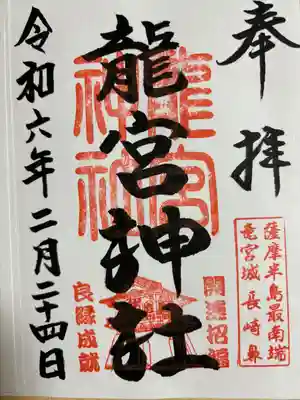 奉拝
薩摩半島最南端
竜宮城 長崎鼻
龍宮神社
龍宮神社
開運招福
良縁成就
令和六年二月二十四日